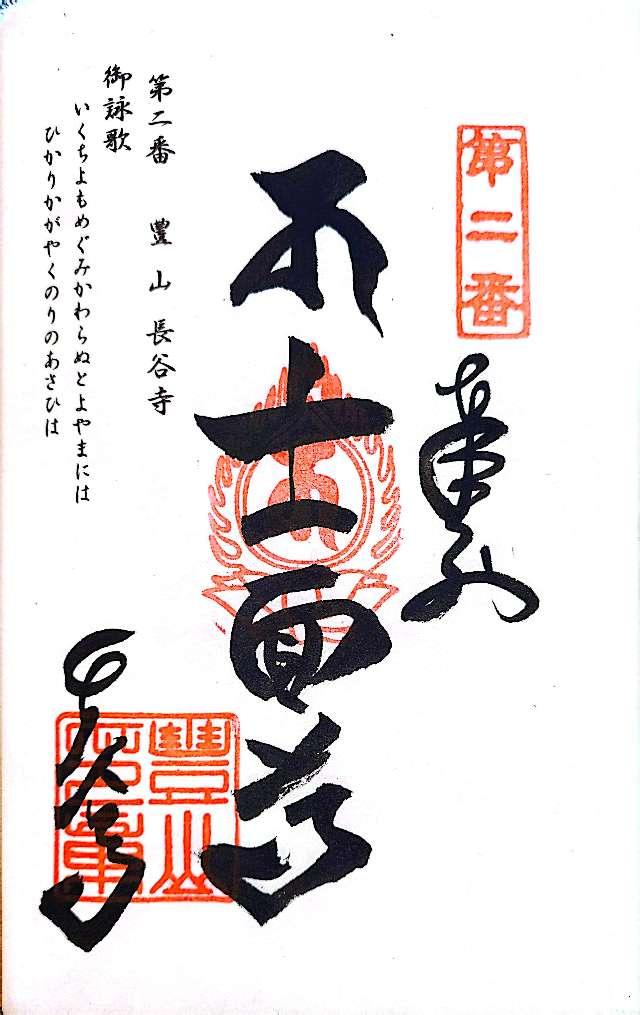 第二番
奉拝
十一面尊
長谷寺
豐山
第二番 豐山 長谷寺
御詠歌
いくちよもめぐみかわらぬとよやまには
ひかりかがやくのりのあさひは